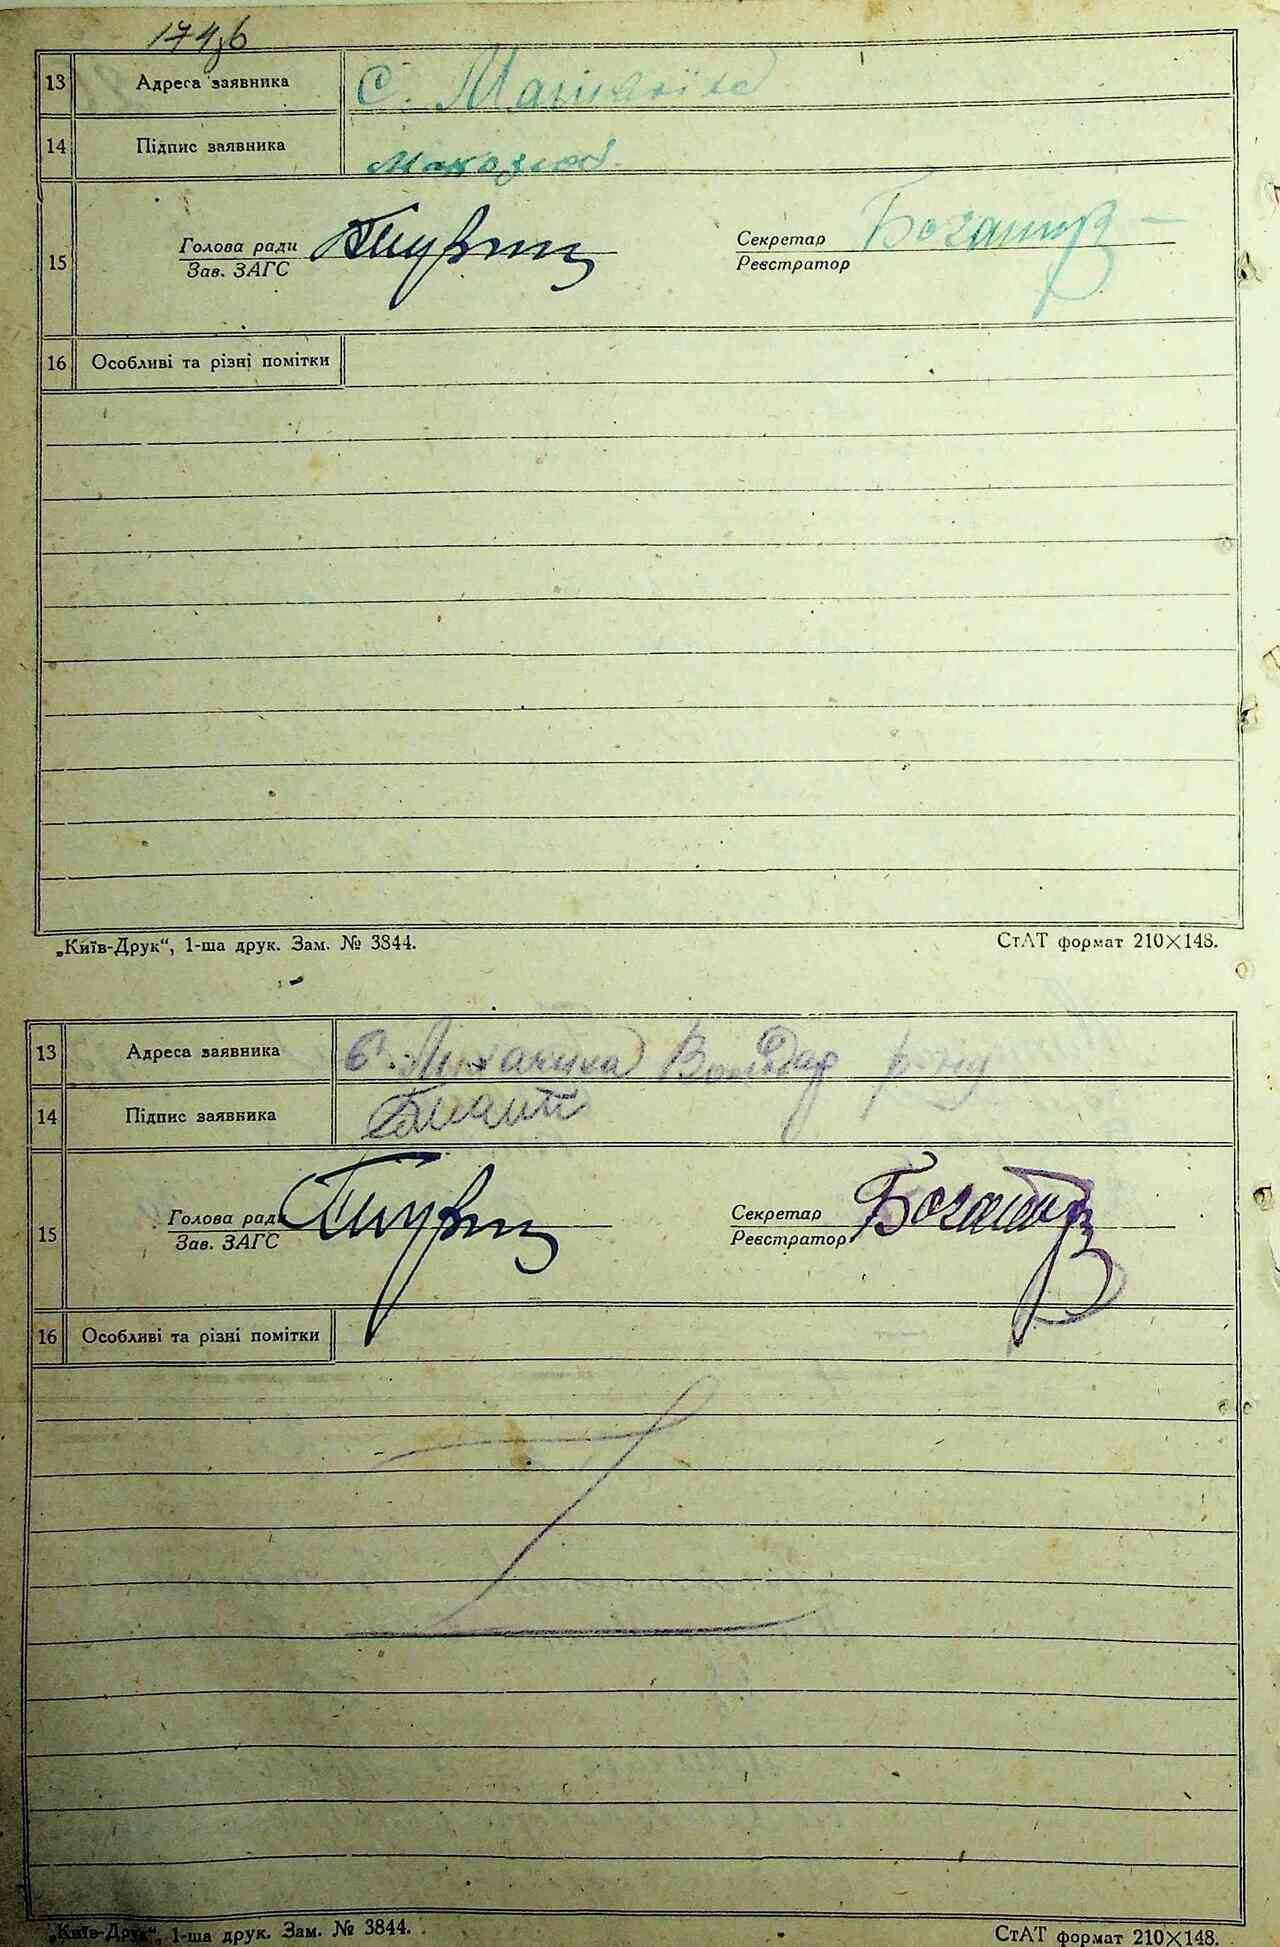 174зв
13 Адреса заявника С.
14 Підпис заявника
Голова ради Секретар Богатир
15
Зав. ЗАГС Реєстратор
16 Особливі та різні помітки
„Київ-Друк“, 1-ша друк. Зам. № 3844. СтАТ формат 210×148.
13 Адреса заявника с. Володар р-ну
14 Підпис заявника
Голова ради Секретар Богатир
15
Зав. ЗАГС Реєстратор
16 Особливі та різні помітки
„Київ-Друк“, 1-ша друк. Зам. № 3844. СтАТ формат 210×148.